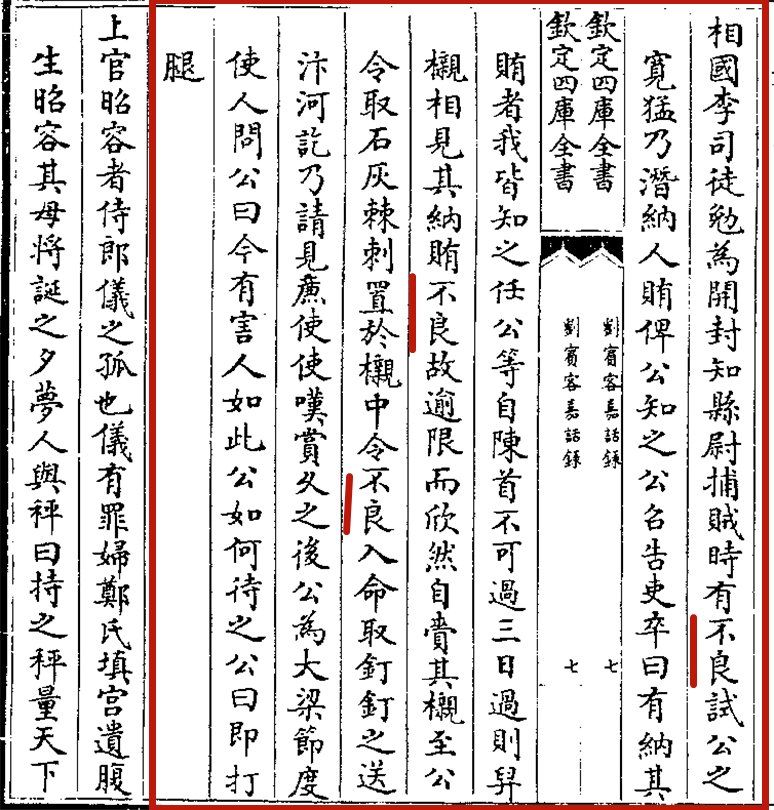 相國李司徒勉為開封知縣尉捕賊時有不良試公之
寛猛乃潛納人賄俾公知之公召告吏卒曰有納其
欽定四庫全書
劉賓客嘉話録
七
欽定四庫全書
劉賓客嘉話録
七
賄者我皆知之任公等自陳首不可過三日過則舁
櫬相見其納賄不良故逾限而欣然自賷其櫬至公
令取石灰棘刺置於櫬中令不良入命取釘釘之送
汴河訖乃請見㢘使使嘆賞久之後公為大梁節度
使人問公曰今有害人如此公如何待之公曰即打
腿
上官昭容者侍郎儀之孤也儀有罪婦鄭氏填宫遺腹
生昭容其母將誕之夕夢人與秤曰持之秤量天下